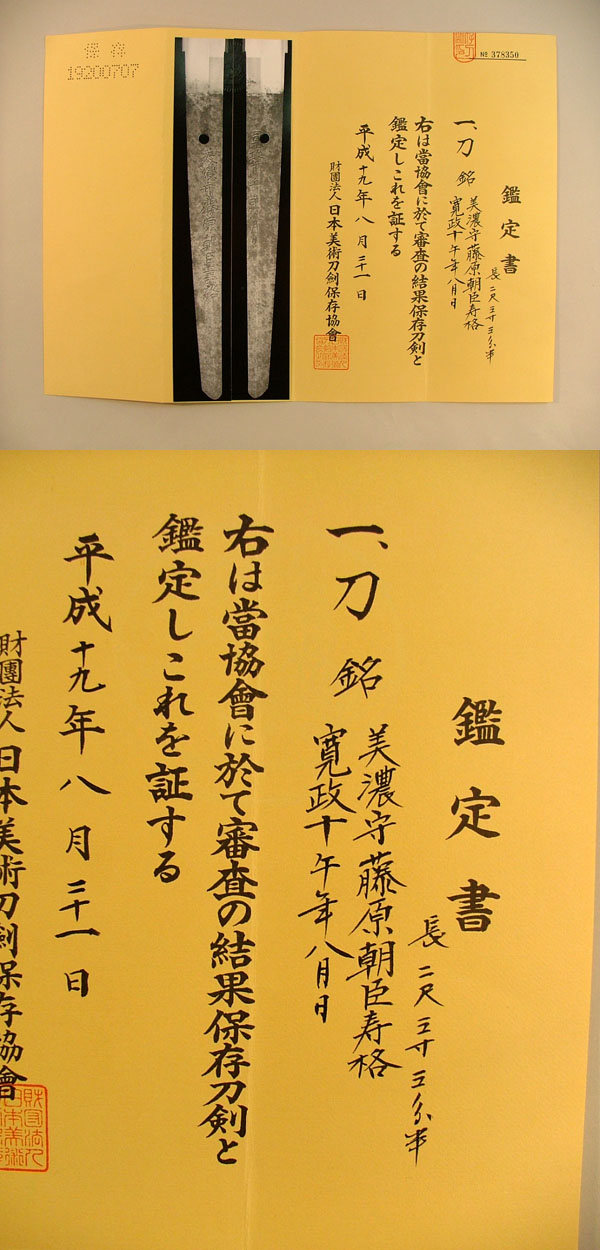 № 378350
鑑定書
一、刀 銘 美濃守藤原朝臣寿格
寛政十午年八月日
長二尺三寸三分半
右は當協會に於て審査の結果保存刀剣と
鑑定しこれを証する
平成十九年八月三十一日
財團法人日本美術刀剣保存協會
保存
19200707
鑑定書
一、刀 銘 美濃守藤原朝臣寿格
寛政十午年八月日
長二尺三寸三分半
右は當協會に於て審査の結果保存刀剣と
鑑定しこれを証する
平成十九年八月三十一日
財團法人日本美術刀剣保存協會